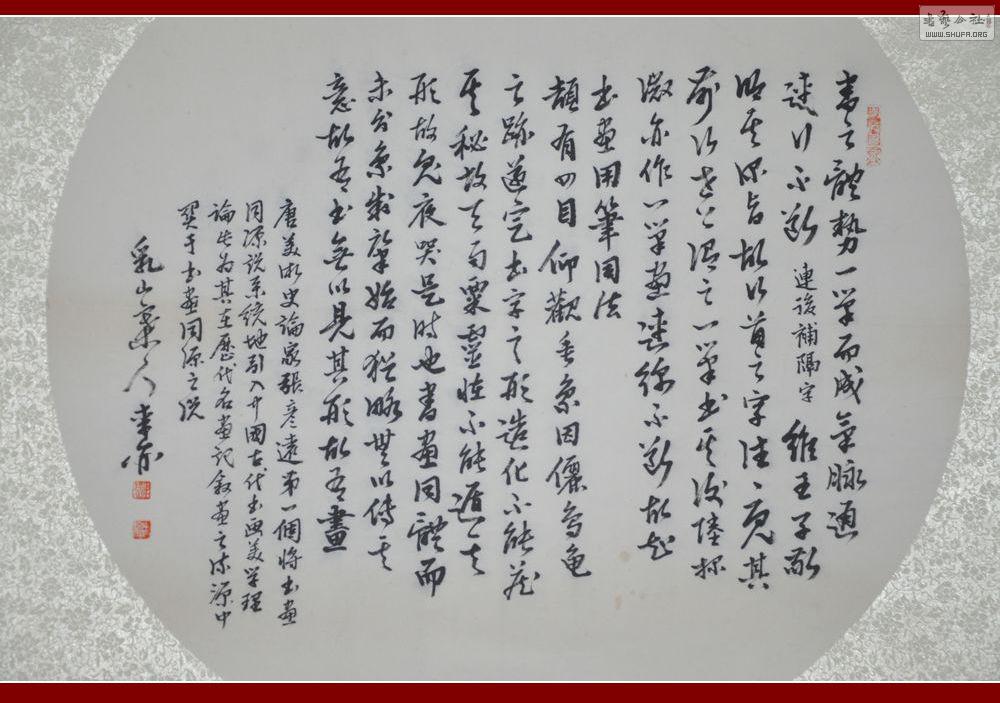 書之體勢一筆而成氣脈通
連行不斷 連後補隔字 維王子敬
明其深旨故行首之字往往見其
前行世上謂之一筆書其後陸探
微亦作一筆畫連綿不斷故知
書畫用筆同法
頡有四目仰觀垂象因儷鳥龜
之跡遂定書字之形造化不能藏
其秘故天雨粟靈怪不能遁其
形故鬼夜哭是時也書畫同體而
未分象制肇始而猶略無以傳其
意故有書無以見其形故有畫
唐美術史論家張彥遠第一個將書畫
同源說系統地引入中國古代书画美学理
論 為其在歷代名畫記敘畫之 源中
于書畫同源之說
乳山 人
书艺公社
WWW.SHUFA.ORG